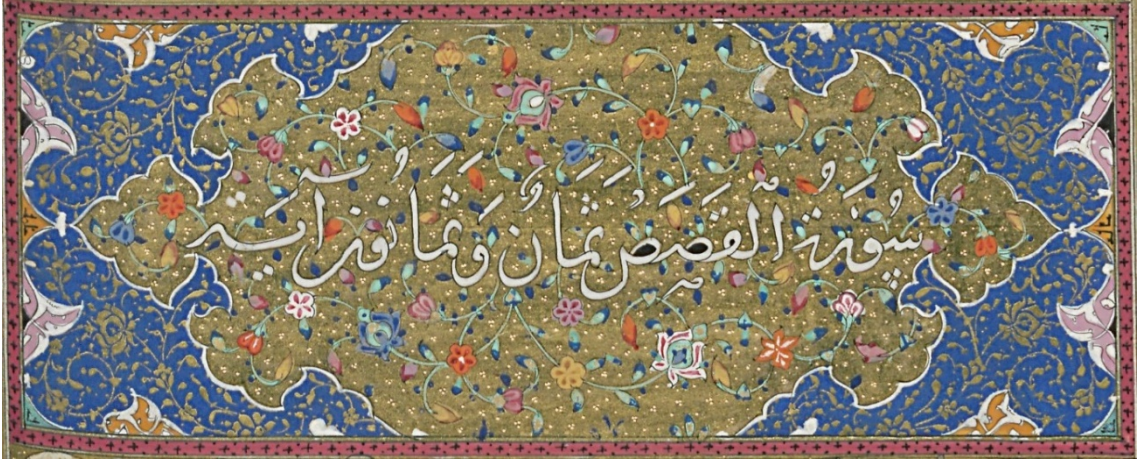 سُورَةُ الْقَصَصِ ثَمَانٌ وَثَمَانُونَ اٰيَة